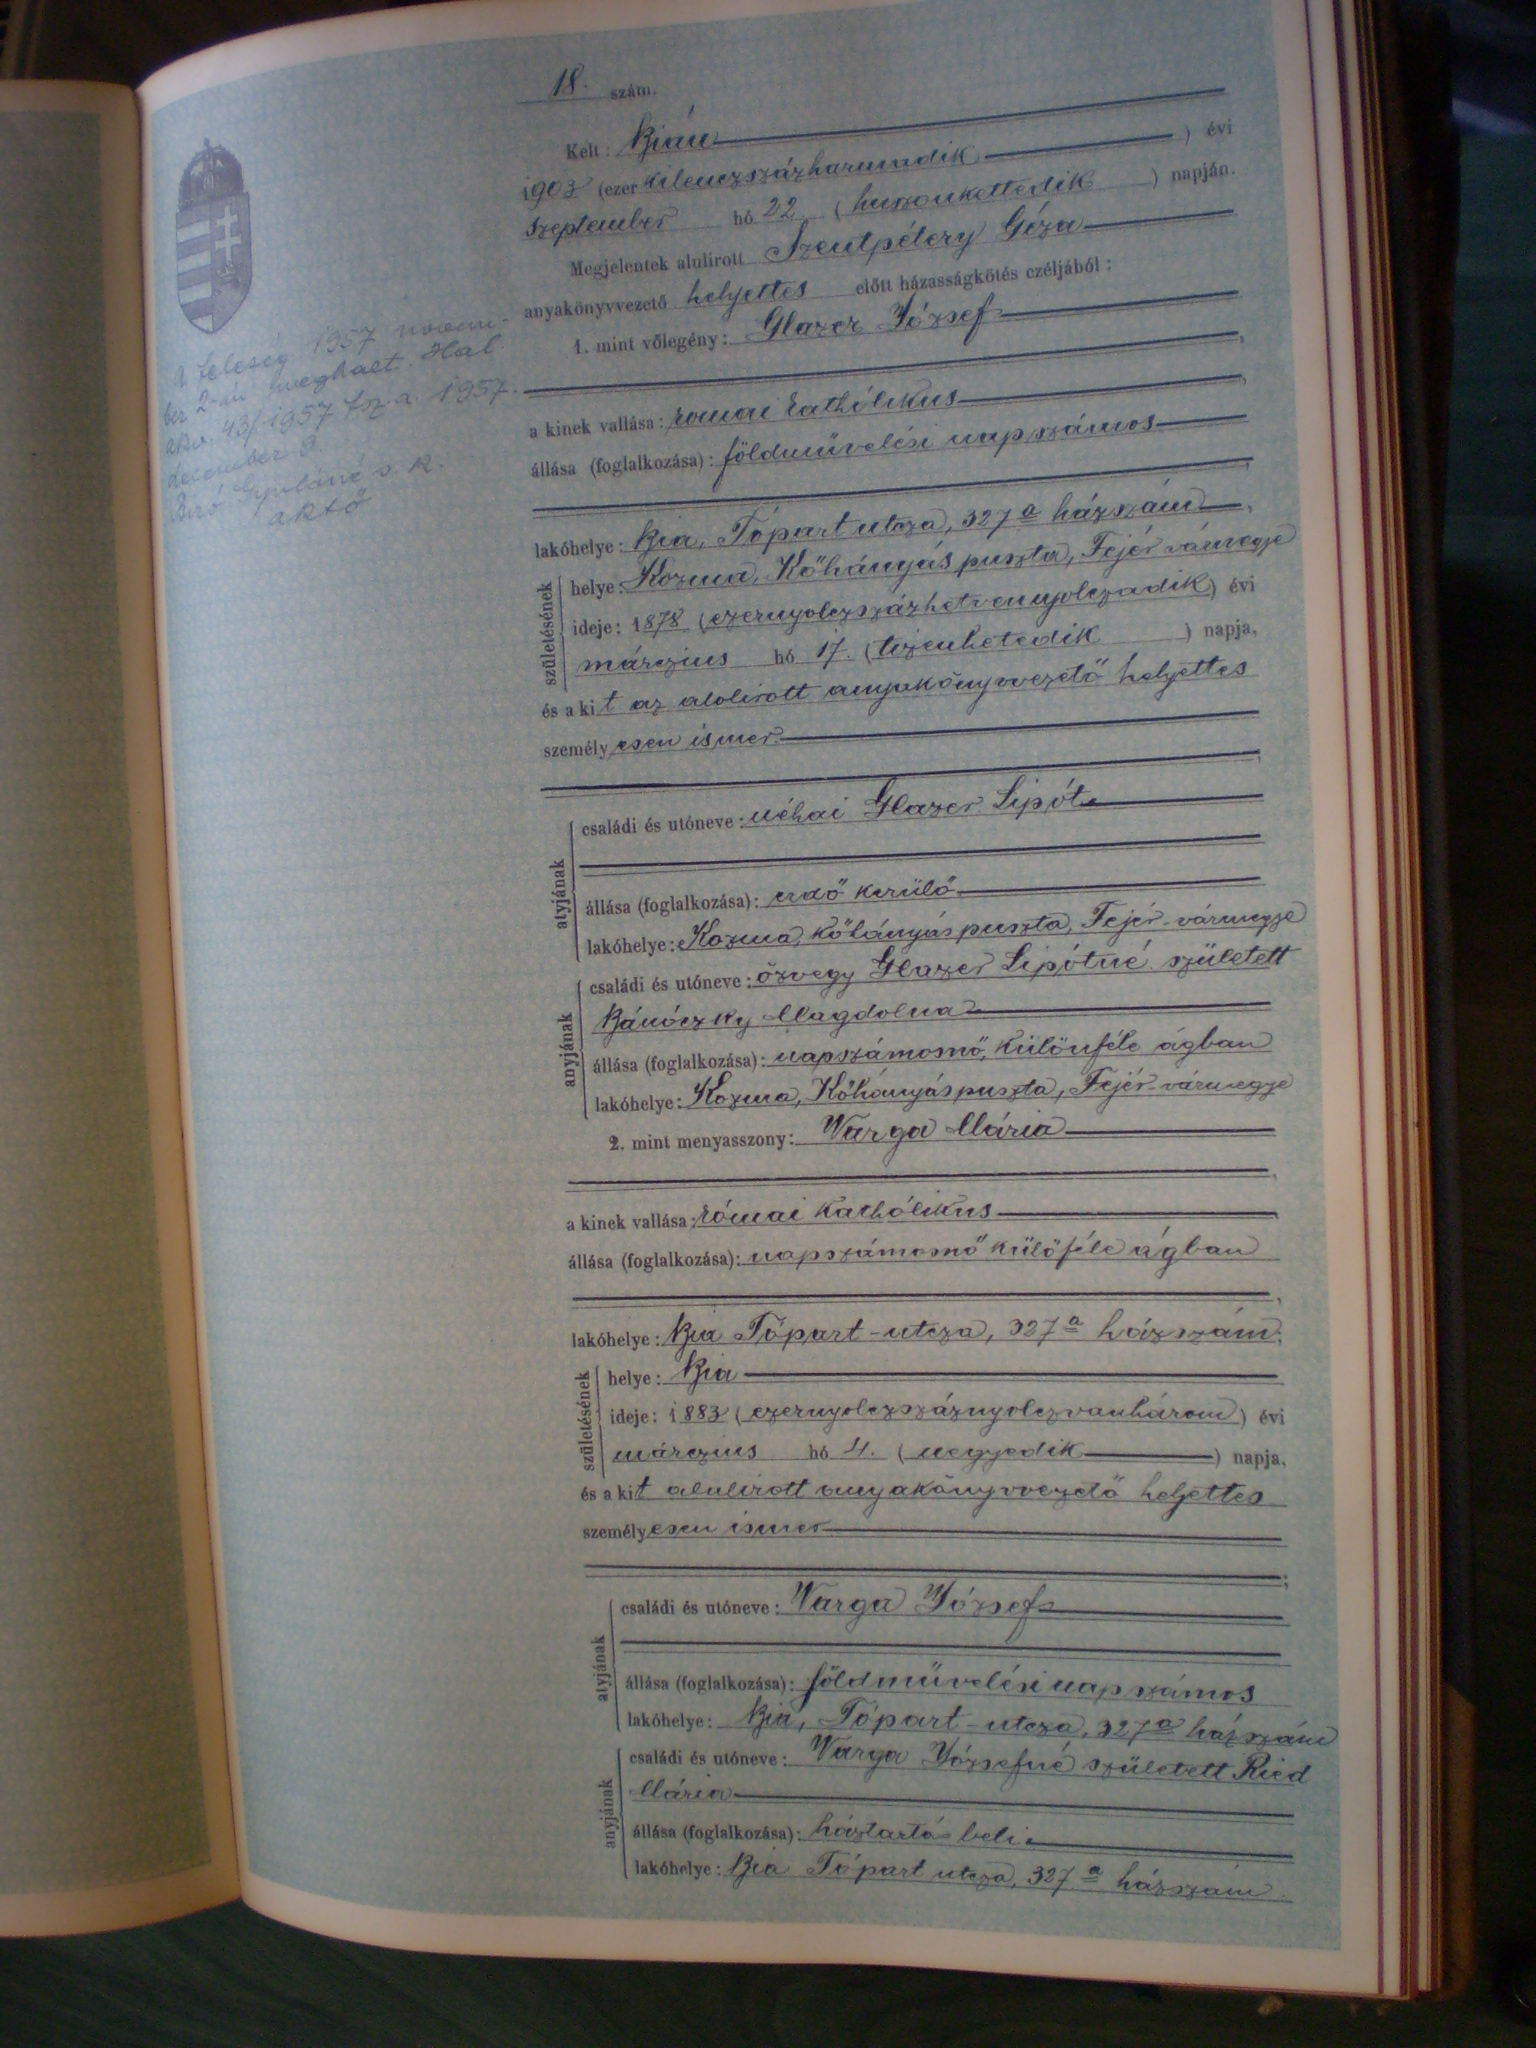 18. szám.
Kelt: Bián
1903 (ezer kilenczszázharmadik) évi
szeptember hó 22 (huszonkettedik) napján.
Megjelentek alulirott Szentpétery Géza
anyakönyvvezető helyettes előtt házasságkötés czéljából:
1. mint vőlegény: Glazer József
a kinek vallása: római kathólikus
állása (foglalkozása): földmüvelési napszámos
lakóhelye: Bia, Tópart utcza, 327 a házszám
születésének
helye: Kozma, Kőhányás puszta, Fejér vármegye
ideje: 1878 (ezernyolczszázhetvennyolczadik) évi
márczius hó 17. (tizenhetedik) napja,
és a kit az alolirott anyakönyvvezető helyettes
személyesen ismer.
atyjának
családi és utóneve: néhai Glazer Lipót
állása (foglalkozása): erdő kerülő
lakóhelye: Kozma, kőhányás puszta, Fejér-vármegye
anyjának
családi és utóneve: özvegy Glazer Lipótné született
Bánóczky Magdolna
állása (foglalkozása): napszámosnő, különféle ágban
lakóhelye: Kozma, Kőhányás puszta, Fejér-vármegye
2. mint menyasszony: Varga Mária
a kinek vallása: római kathólikus
állása (foglalkozása): napszámosnő külöféle ágban
lakóhelye: Bia Tópart-utcza, 327 a házszám;
születésének
helye: Bia
ideje: 1883 (ezernyolczszáznyolczvanhárom) évi
márczius hó 4. (negyedik) napja,
és a kit alulirott anyakönyvvezető helyettes
személyesen ismer
atyjának
családi és utóneve: Varga József
állása (foglalkozása): földmüvelési napszámos
lakóhelye: Bia, Tópart-utcza, 327 a házszám
anyjának
családi és utóneve: Varga Józsefné született Ried
Mária
állása (foglalkozása): háztartásbeli
lakóhelye: Bia Tópart utcza, 327 a házszám
A feleség 1957 novem-
ber 2-án meghalt. Hal.
akv. 43/1957 fsz. a. 1957.
december 3.
Biró Gyuláné s. k.